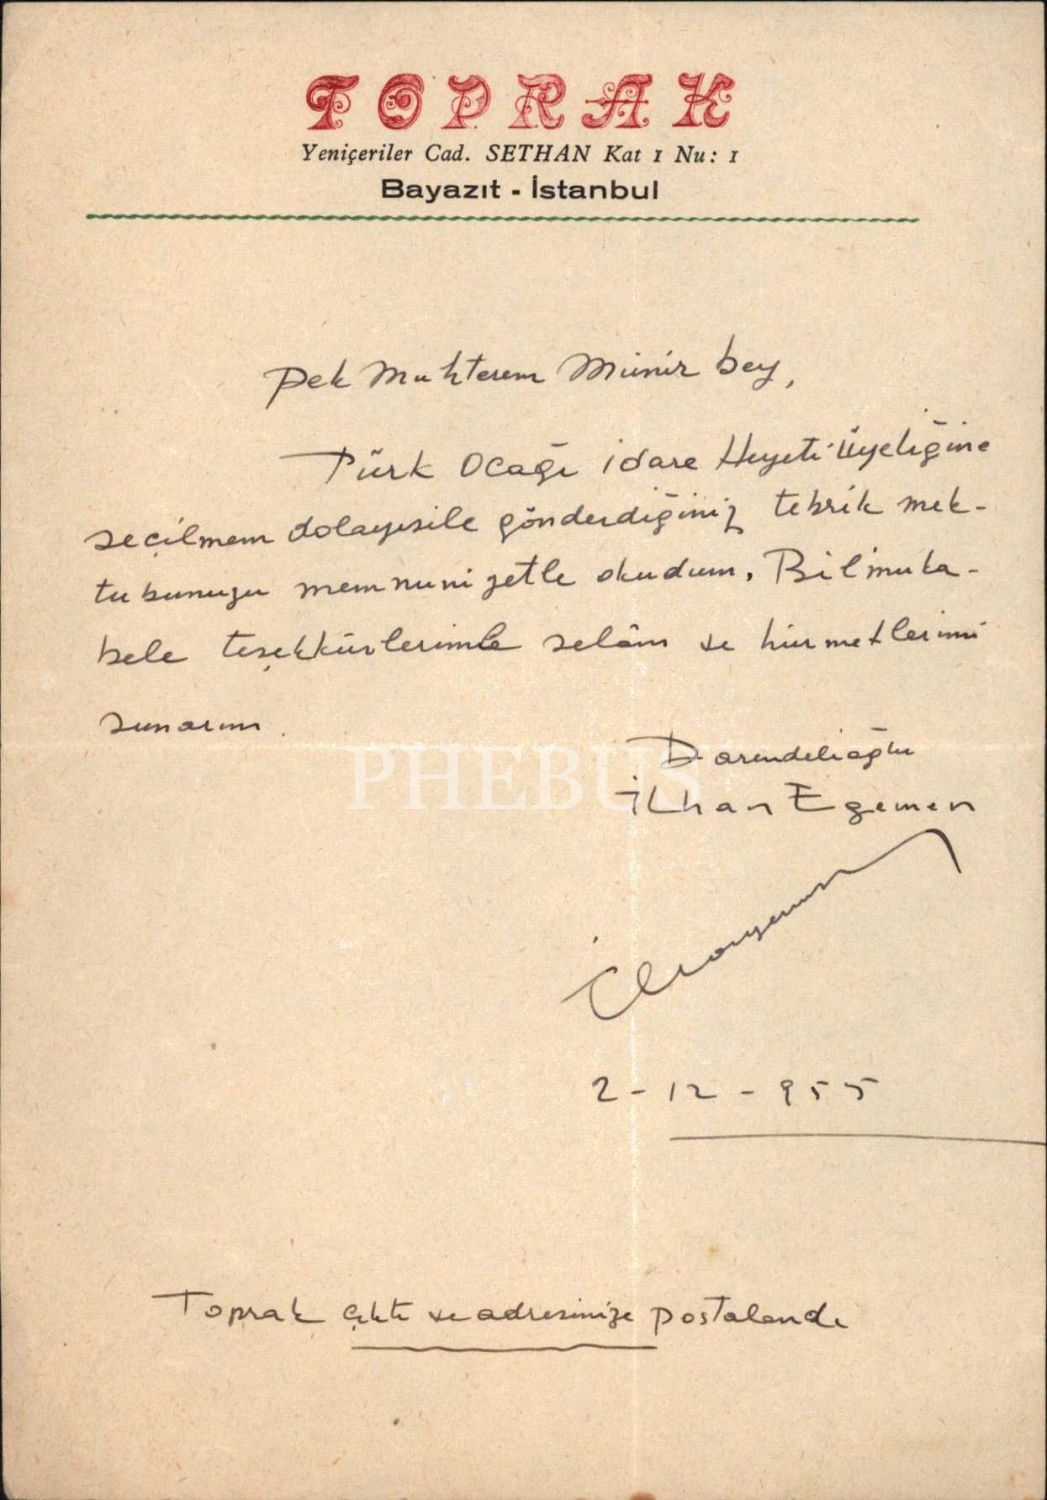 TOPRAK
Yeniçeriler Cad. SETHAN Kat 1 Nu: 1
Bayazıt - İstanbul
Pek Muhterem Münir bey,
Türk Ocağı idare Heyeti Üyeliğine
seçilmem dolayısile gönderdiğiniz tebrik mek-
tubunuzu memnuniyetle okudum. Bilmuka-
bele teşekkürlerimle selâm ve hürmetlerimi
sunarım.
PHEBUS
Darendelioğlu
İlhan Egemen
2-12-955
Toprak çıktı ve adresinize postalandı